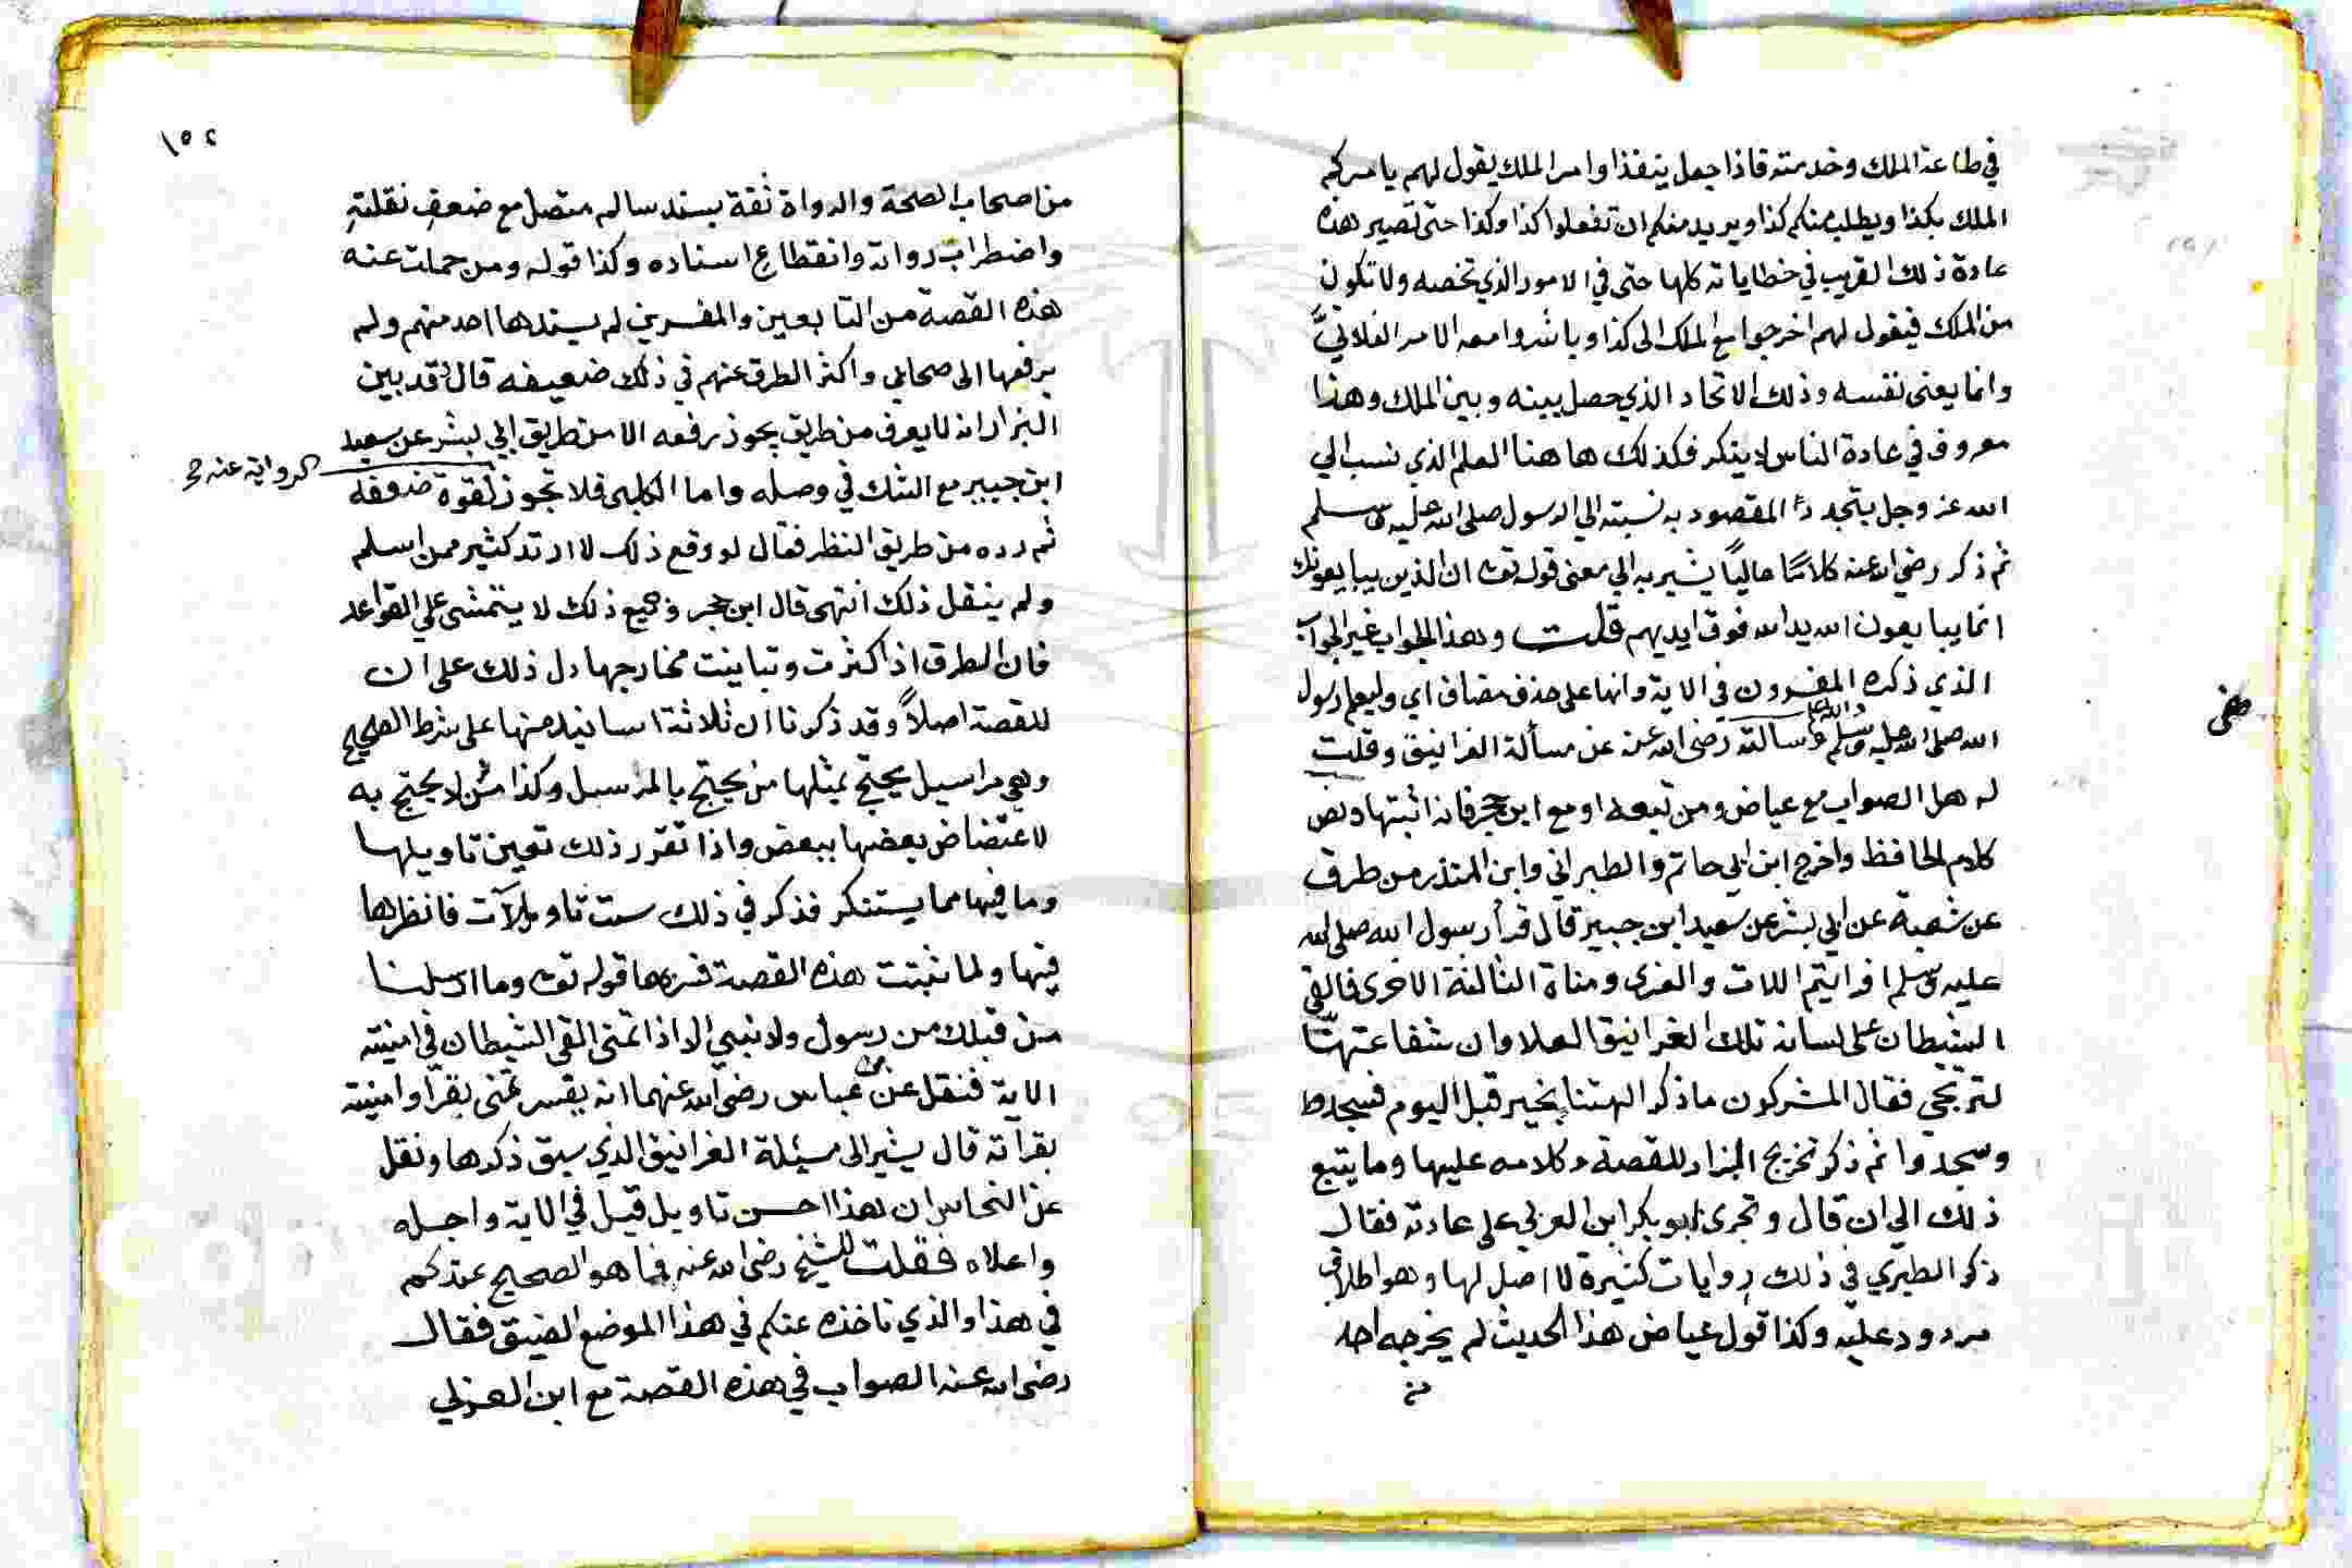 في طاعة الملك وخدمته فاذا جعل ينفذ اوامر الملك يقول لهم يامركم
الملك بكذا ويطلب منكم كذا ويريد منكم ان تفعلوا كذا وكذا حتى تصير هذه
عادة ذلك القريب في خطاباته كلها حتى في الامور الذي تخصه ولا تكون
من الملك فيقول لهم اخرجوا مع الملك الى كذا وباشروا معه الامر الفلاني
وانما يعنى نفسه وذلك الاتحاد الذي حصل بينه وبين الملك وهذا
معروف في عادة الناس لا ينكر فكذلك ها هنا العلم الذي نسب الي
الله عز وجل يتجدد المقصود به نسبته الي الرسول صلى الله عليه وسلم
ثم ذكر رضي الله عنه كلاما عاليا يشير به الي معنى قوله تعا ان الذين يبايعونك
انما يبايعون الله يد الله فوق ايديهم قلت وهذا الجواب غير الجواب
الذي ذكره المفسرون في الاية وانها على حذف مضاف اي وليعلم رسول
الله صلى الله عليه وسلم والله اعلم وسالته رضي الله عنه عن مسألة الغرانيق وقلت
له هل الصواب مع عياض ومن تبعه او مع ابن حجر فانه اثبتها ونص
كلام الحافظ واخرج ابن ابي حاتم والطبراني وابن المنذر من طرق
عن شعبة عن ابي بشر عن سعيد ابن جبير قال قرأ رسول الله صلى الله
عليه وسلم افرايتم اللات والعزى ومناة الثالثة الاخرى فالقى
الشيطان على لسانه تلك الغرانيق العلا وان شفاعتهن
لترتجي فقال المشركون ما ذكر الهتنا بخير قبل اليوم فسجد
وسجدوا ثم ذكر تخريج البزار للقصة وكلامه عليها وما يتبع
ذلك الي ان قال وتجرى ابو بكر ابن العربي على عادته فقال
ذكر الطبري في ذلك روايات كثيرة لا اصل لها وهو اطلاق
مردود عليه وكذا قول عياض هذا الحديث لم يخرجه احد
من
١٥٢
من اصحاب الصحة والرواة ثقة بسند سالم متصل مع ضعف نقلته
واضطراب رواته وانقطاع اسناده وكذا قوله ومن حملت عنه
هذه القصة من التابعين والمفسرين لم يسندها احد منهم ولم
يرفعها الى صحابي واكثر الطرق عنهم في ذلك ضعيفه قال وقد بين
البزار انه لا يعرف من طريق يجوز رفعه الا من طريق ابي بشر عن سعيد
ابن جبير مع الشك في وصله واما الكلبى فلا تجوز لقوة ضعفه
الرواية عنه
ثم رده من طريق النظر فقال لو وقع ذلك لارتد كثير ممن اسلم
ولم ينقل ذلك انتهى قال ابن حجر وجميع ذلك لا يتمشى على القواعد
فان الطرق اذا كثرت وتباينت مخارجها دل ذلك على ان
للقصة اصلاً وقد ذكرنا ان ثلاثة اسانيد منها على شرط الصحيح
وهي مراسيل يحتج بمثلها من يحتج بالمرسل وكذا من لا يحتج به
لاعتضاض بعضها ببعض واذا تقرر ذلك تعين تاويلها
وما فيها مما يستنكر فذكر في ذلك ست تاويلات فانظرها
فيها ولما ثبتت هذه القصة فسرها قوله تعا وما ارسلنا
من قبلك من رسول ولا نبي الا اذا تمنى القى الشيطان في امنيته
الاية فنقل عن بن عباس رضي الله عنهما انه يفسر تمنى بقرأ وامنيته
بقرآته قال يشير الى مسئلة الغرانيق الذي سبق ذكرها ونقل
عن النحاس ان هذا احسن تاويل قيل في الاية واجله
واعلاه فقلت للشيخ رضي الله عنه فما هو الصحيح عندكم
في هذا والذي ناخذه عنكم في هذا الموضع الضيق فقال
رضي الله عنه الصواب في هذه القصة مع ابن العربي